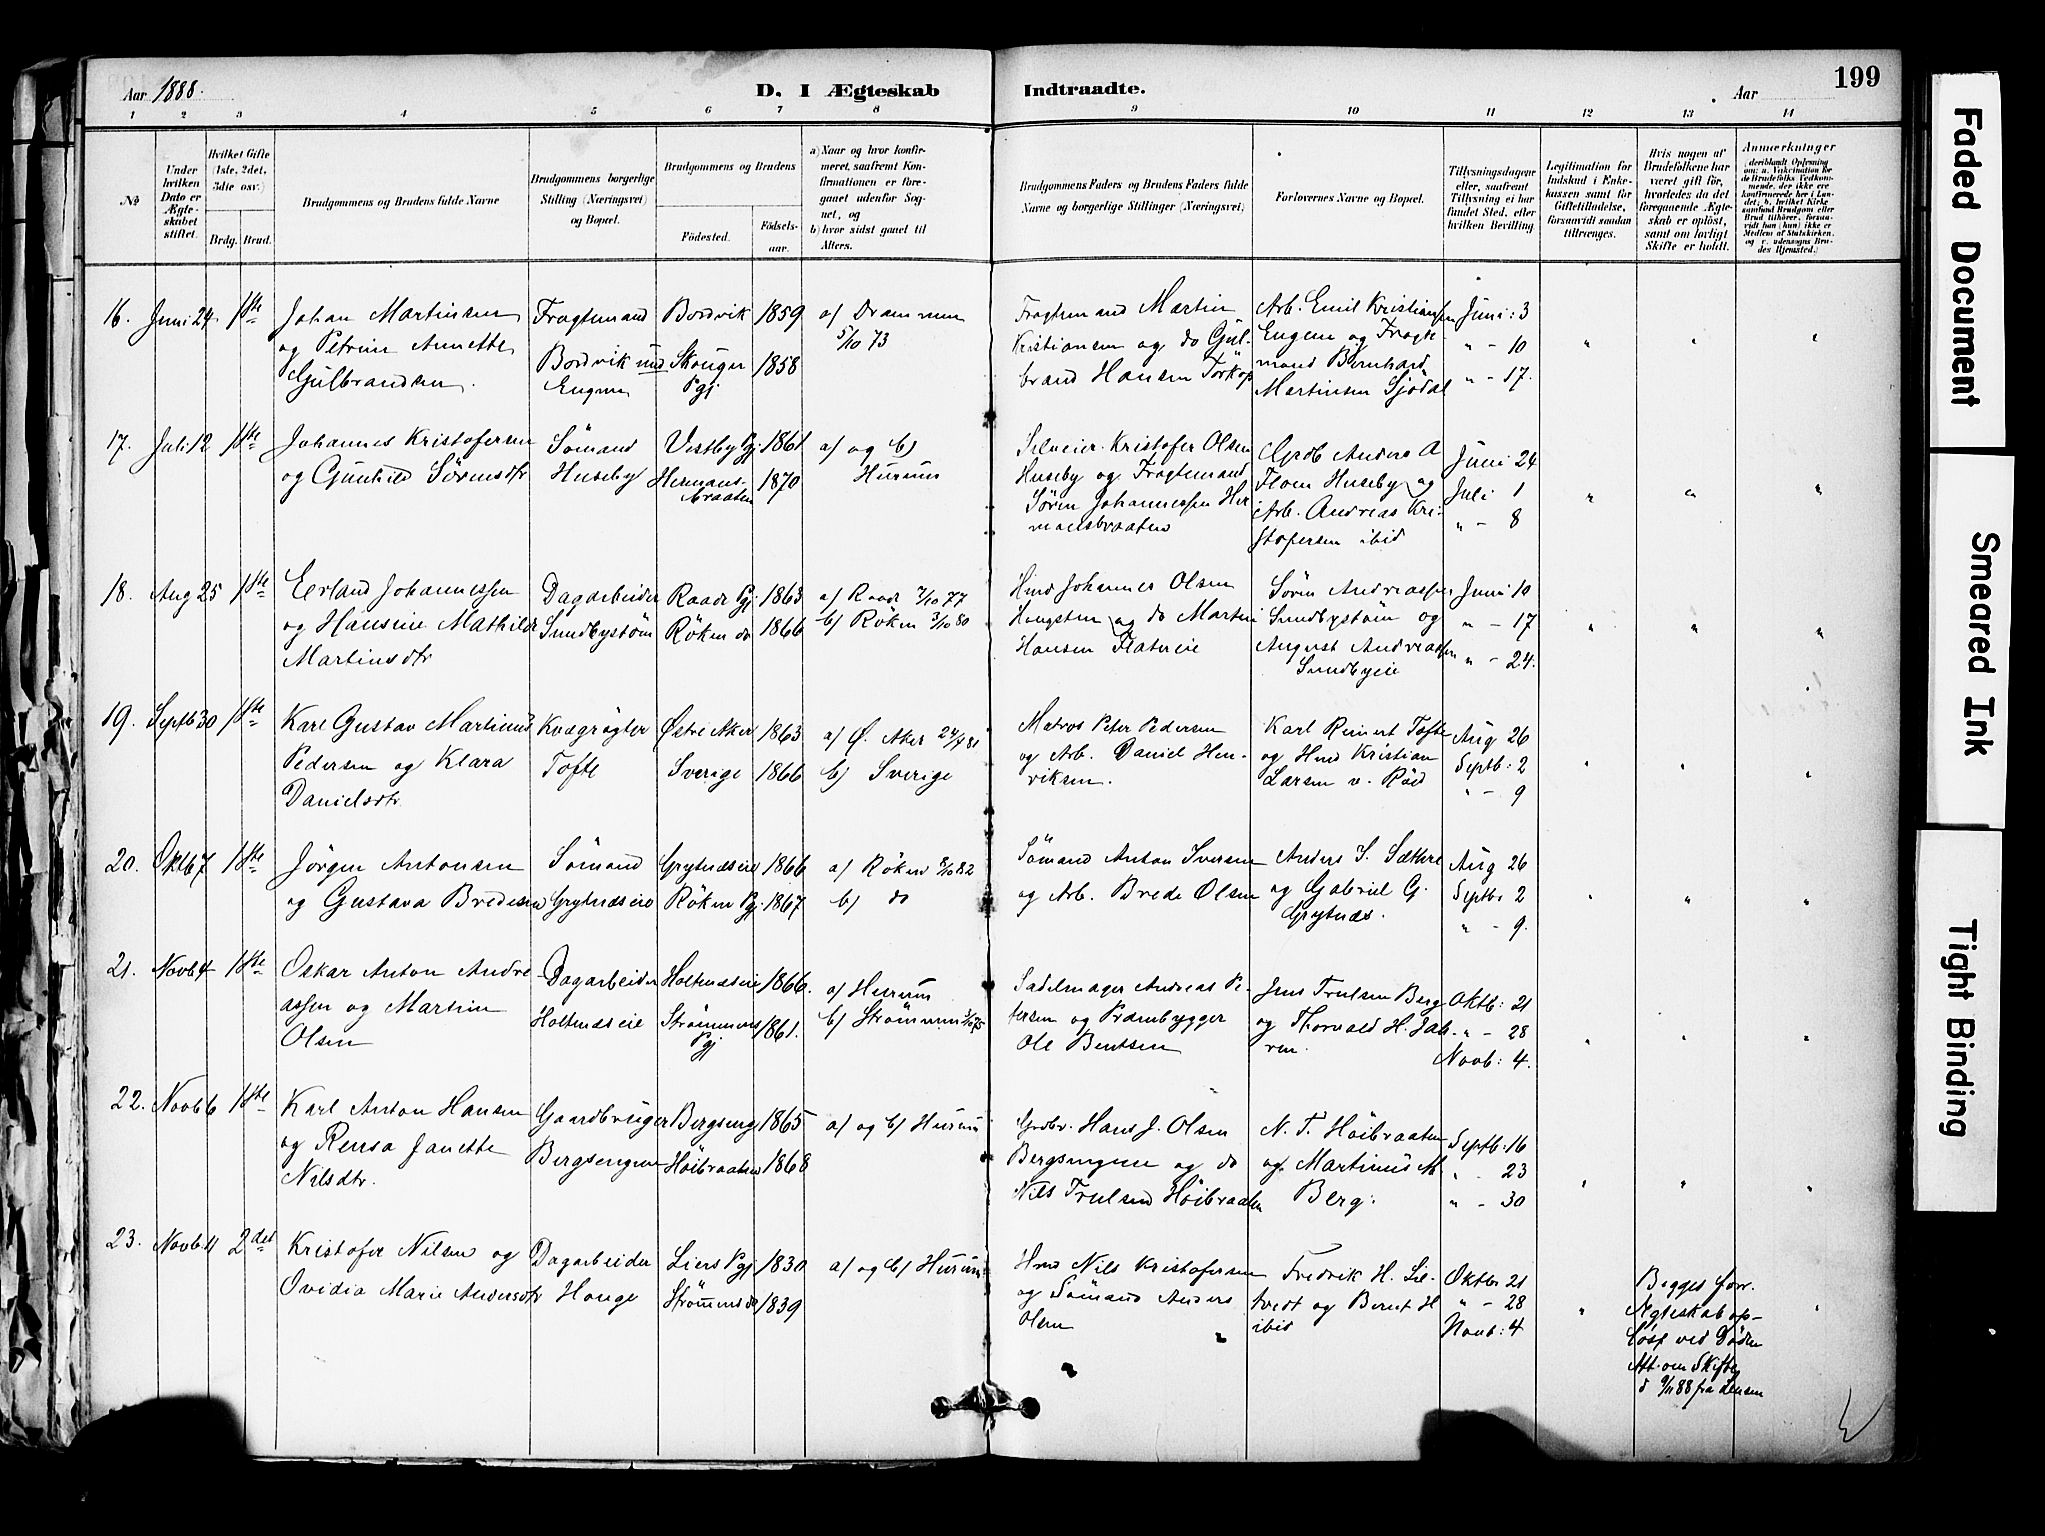 Aar 1888.
D. I Ægteskab
Indtraadte.
Aar
199
1 2 3 4 5 6 7 8 9 10 11 12 13 14
№
Under hvilken Dato er Ægteskabet stiftet.
Hvilket Gifte (1ste, 2det, 3die osv.)
Brdg. Brud.
Brudgommens og Brudens fulde Navne
Brudgommens borgerlige Stilling (Næringsvei) og Bopæl.
Brudgommens og Brudens
Födested.
Födselsaar.
a) Naar og hvor konfirmeret, saafremt Konfirmationen er foregaaet udenfor Sognet, og
b) hvor sidst gaaet til Alters.
Brudgommens Faders og Brudens Faders fulde Navne og borgerlige Stillinger (Næringsvei)
Forlovernes Navne og Bopæl.
Tillysningsdagene eller, saafremt Tillysning ei har fundet Sted, efter hvilken Bevilling
Legitimation for Indskud i Enkekassen samt for Giftetilladelse, forsaavidt saadan tiltrænges.
Hvis nogen af Brudefolkene har været gift för, hvorledes da det foregaaende Ægteskab er oplöst, samt om lovligt Skifte er holdt.
Anmerkninger
16. Juni 24. 1ste
Johan Martinsen
og Petrine Annette
Gulbrandsen.
Fragtemand
Bordvik und
Engene
Bordvik 1859
Skouger Pgj 1858
a) Drammen
5/10 73
Fragtemand Martin
Kristiansen og do Gul-
brand Hansen Torkop
Arb. Emil Kristiansen
Engene og Fragte-
mand Bernhard
Martinsen Sjödal
Juni: 3
" - 10
" - 17.
17. Juli 12 1ste
Johannes Kristofersen
og Gunhild Sörensdtr
Sömand
Huseby
Vestby Pgj. 1861
Hermans-
braaten 1870
a) og b)
Hurum
Selveier Kristofer Olsen
Huseby og Fragtemand
Sören Johannessen Her
mansbraaten
Grdb Anders A
Floen Huseby og
Arb. Andreas Kri-
stofersen ibid
Juni 24
Juli 1
" - 8
18. Aug 25 1ste
Erland Johannessen
og Hansine Mathilde
Martinsdtr
Dagarbeider
Sundbystöm
Raade Pgj 1863
Röken do 1866
a) Raade 7/10 77
b) Röken 3/10 80
Hmd Johannes Olsen
Haugsten og do Martin
Hansen Flatereie
Sören Andreassen
Sundbystöm og
August Andreassen
Sundbyeie
Juni 10
" - 17
" - 24.
19. Septb 30 1ste
Karl Gustav Martinius
Pedersen og Klara
Danielsdtr.
Kvægrögter
Tofte
Østre Aker 1863
Sverige 1866
a) Ø. Aker 24/4 81
b) Sverige
Matros Peter Pedersen
og Arb. Daniel Hen-
riksen.
Karl Reinert Tofte
og Hmd Kristian
Larsen v. Röed
Aug 26
Septb: 2
" - 9
20. Oktb 7 1ste
Jörgen Antonsen
og Gustava Bredesen
Sömand
Grytnæseie
Grytnæseie 1866
Röken Pgj. 1867
a) Röken 8/10 82
b) do
Sömand Anton Iversen
og Arb. Brede Olsen
Anders I. Sæthre
og Gabriel G.
Grytnæs.
Aug 26
Septb: 2
" - 9.
21. Novb 4 1ste
Oskar Anton Andre-
assen og Martine
Olsen
Dagarbeider
Holtenæseie
Holtenæseie 1866.
Strömmens
Pgj 1861.
a) Hurum
b) Strömmen 3/10 75
Sadelmager Andreas Pe-
tersen og Prambygger
Ole Bentsen
Jens Trulsen Berg
og Thorvald H. Jah
ren.
Oktb: 21
" - 28
Novb: 4.
22. Novb 6 1ste
Karl Anton Hansen
og Rensa Janette
Nilsdtr.
Gaardbruger
Bergsengene
Bergseng 1865
Höibraaten 1868
a) og b) Hurum
Grdbr. Hans J. Olsen
Bergsengene og do
Nils Trulsen Höibraaten
N. T. Höibraaten
og Martinus M
Berg.
Septb: 16
" 23
" - 30
23. Novb 11 2det
Kristofer Nilsen og
Ovidia Marie Andersdtr
Dagarbeider
Hauge
Liers Pgj 1830
Strömmens do 1839
a) og b) Hurum
Hmd Nils Kristofersen
og Sömand Anders
Olsen
Fredrik H. Sel-
tvedt og Bernt H
ibid
Oktbr 21
" - 28
Novb: 4
Begges forr.
Ægteskab op-
löst ved Döden
Att. om Skifte
d 9/11 88 fra Lensm
Faded Document
Smeared Ink
Tight Binding